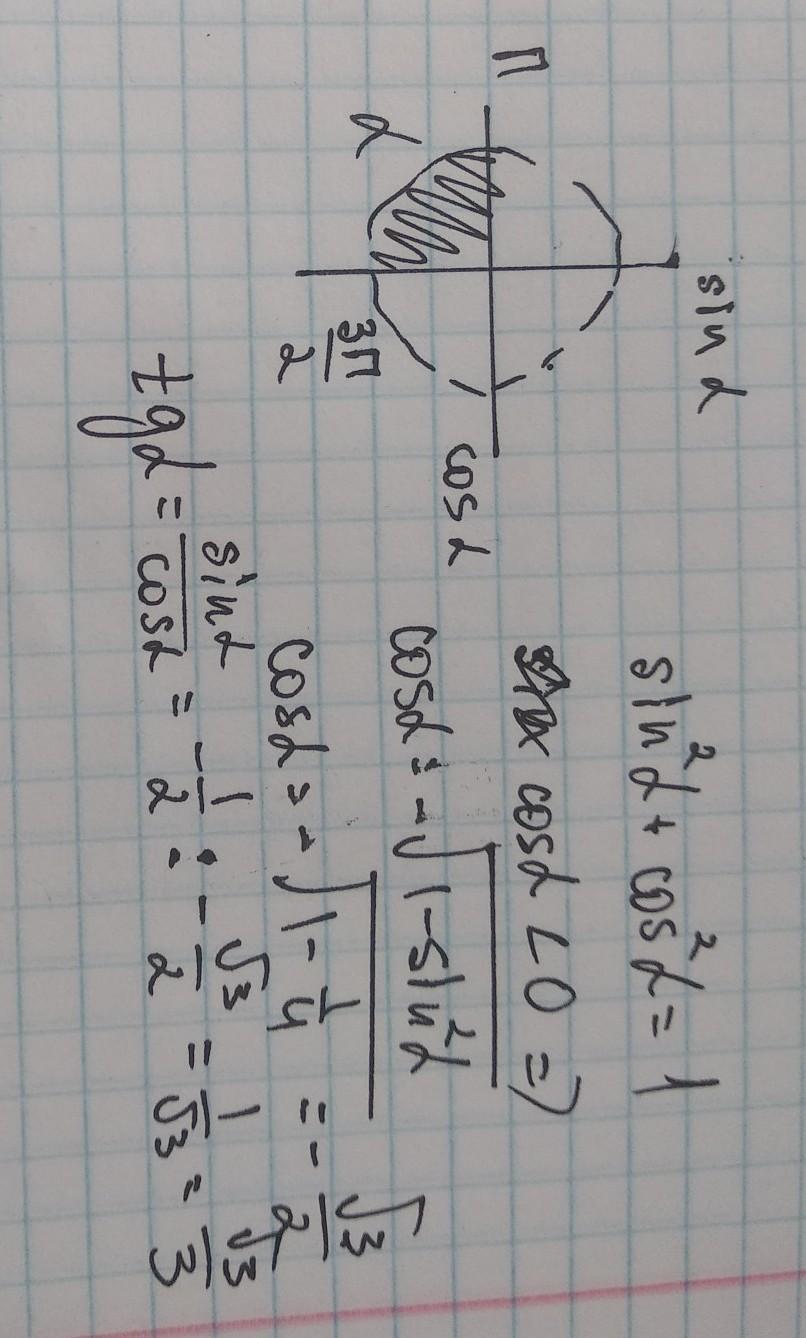 sin α
П
cos α
α
3П/2
sin²α + cos²α = 1
cos α < 0 =>
cos α = -√(1-sin²α)
cos α = -√(1-1/4) = -√3/2
tg α = sin α/cos α = -1/2 : -√3/2 = 1/√3 = √3/3